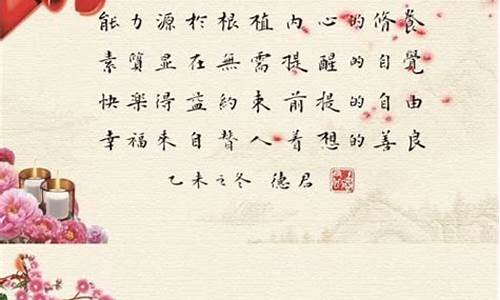 能力源於根植内心的脩養
素質显在無需提醒的自覺
快樂得益約束前提的自由
幸福来自替人着想的善良
乙未之冬 德君